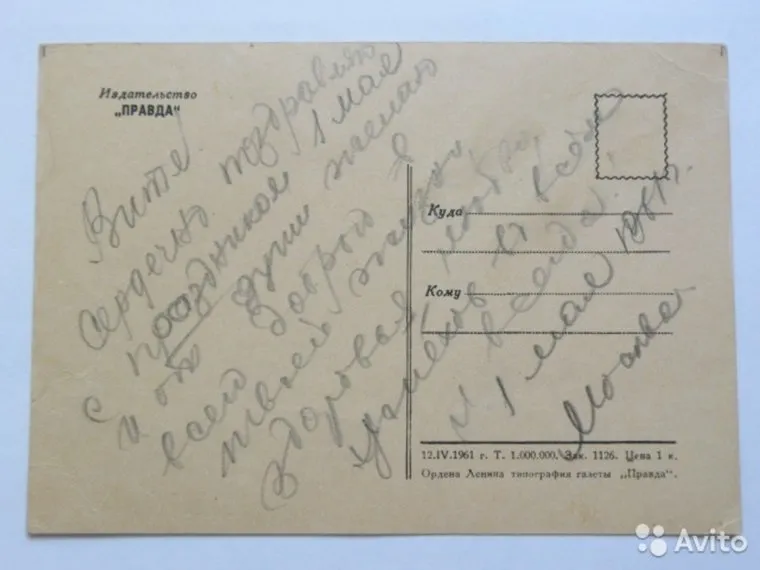 Издательство
„ПРАВДА“
Витя
Сердечно поздравляю
с праздником 1 мая
и от души желаю
всего доброго в
твоей жизни
здоровья, 
успехов в
и всегда!
1 мая 1961 г.
Москва
Куда
Кому
12.IV.1961 г. Т. 1.000.000. Зак. 1126. Цена 1 к.
Ордена Ленина типография газеты „Правда“.
Avito